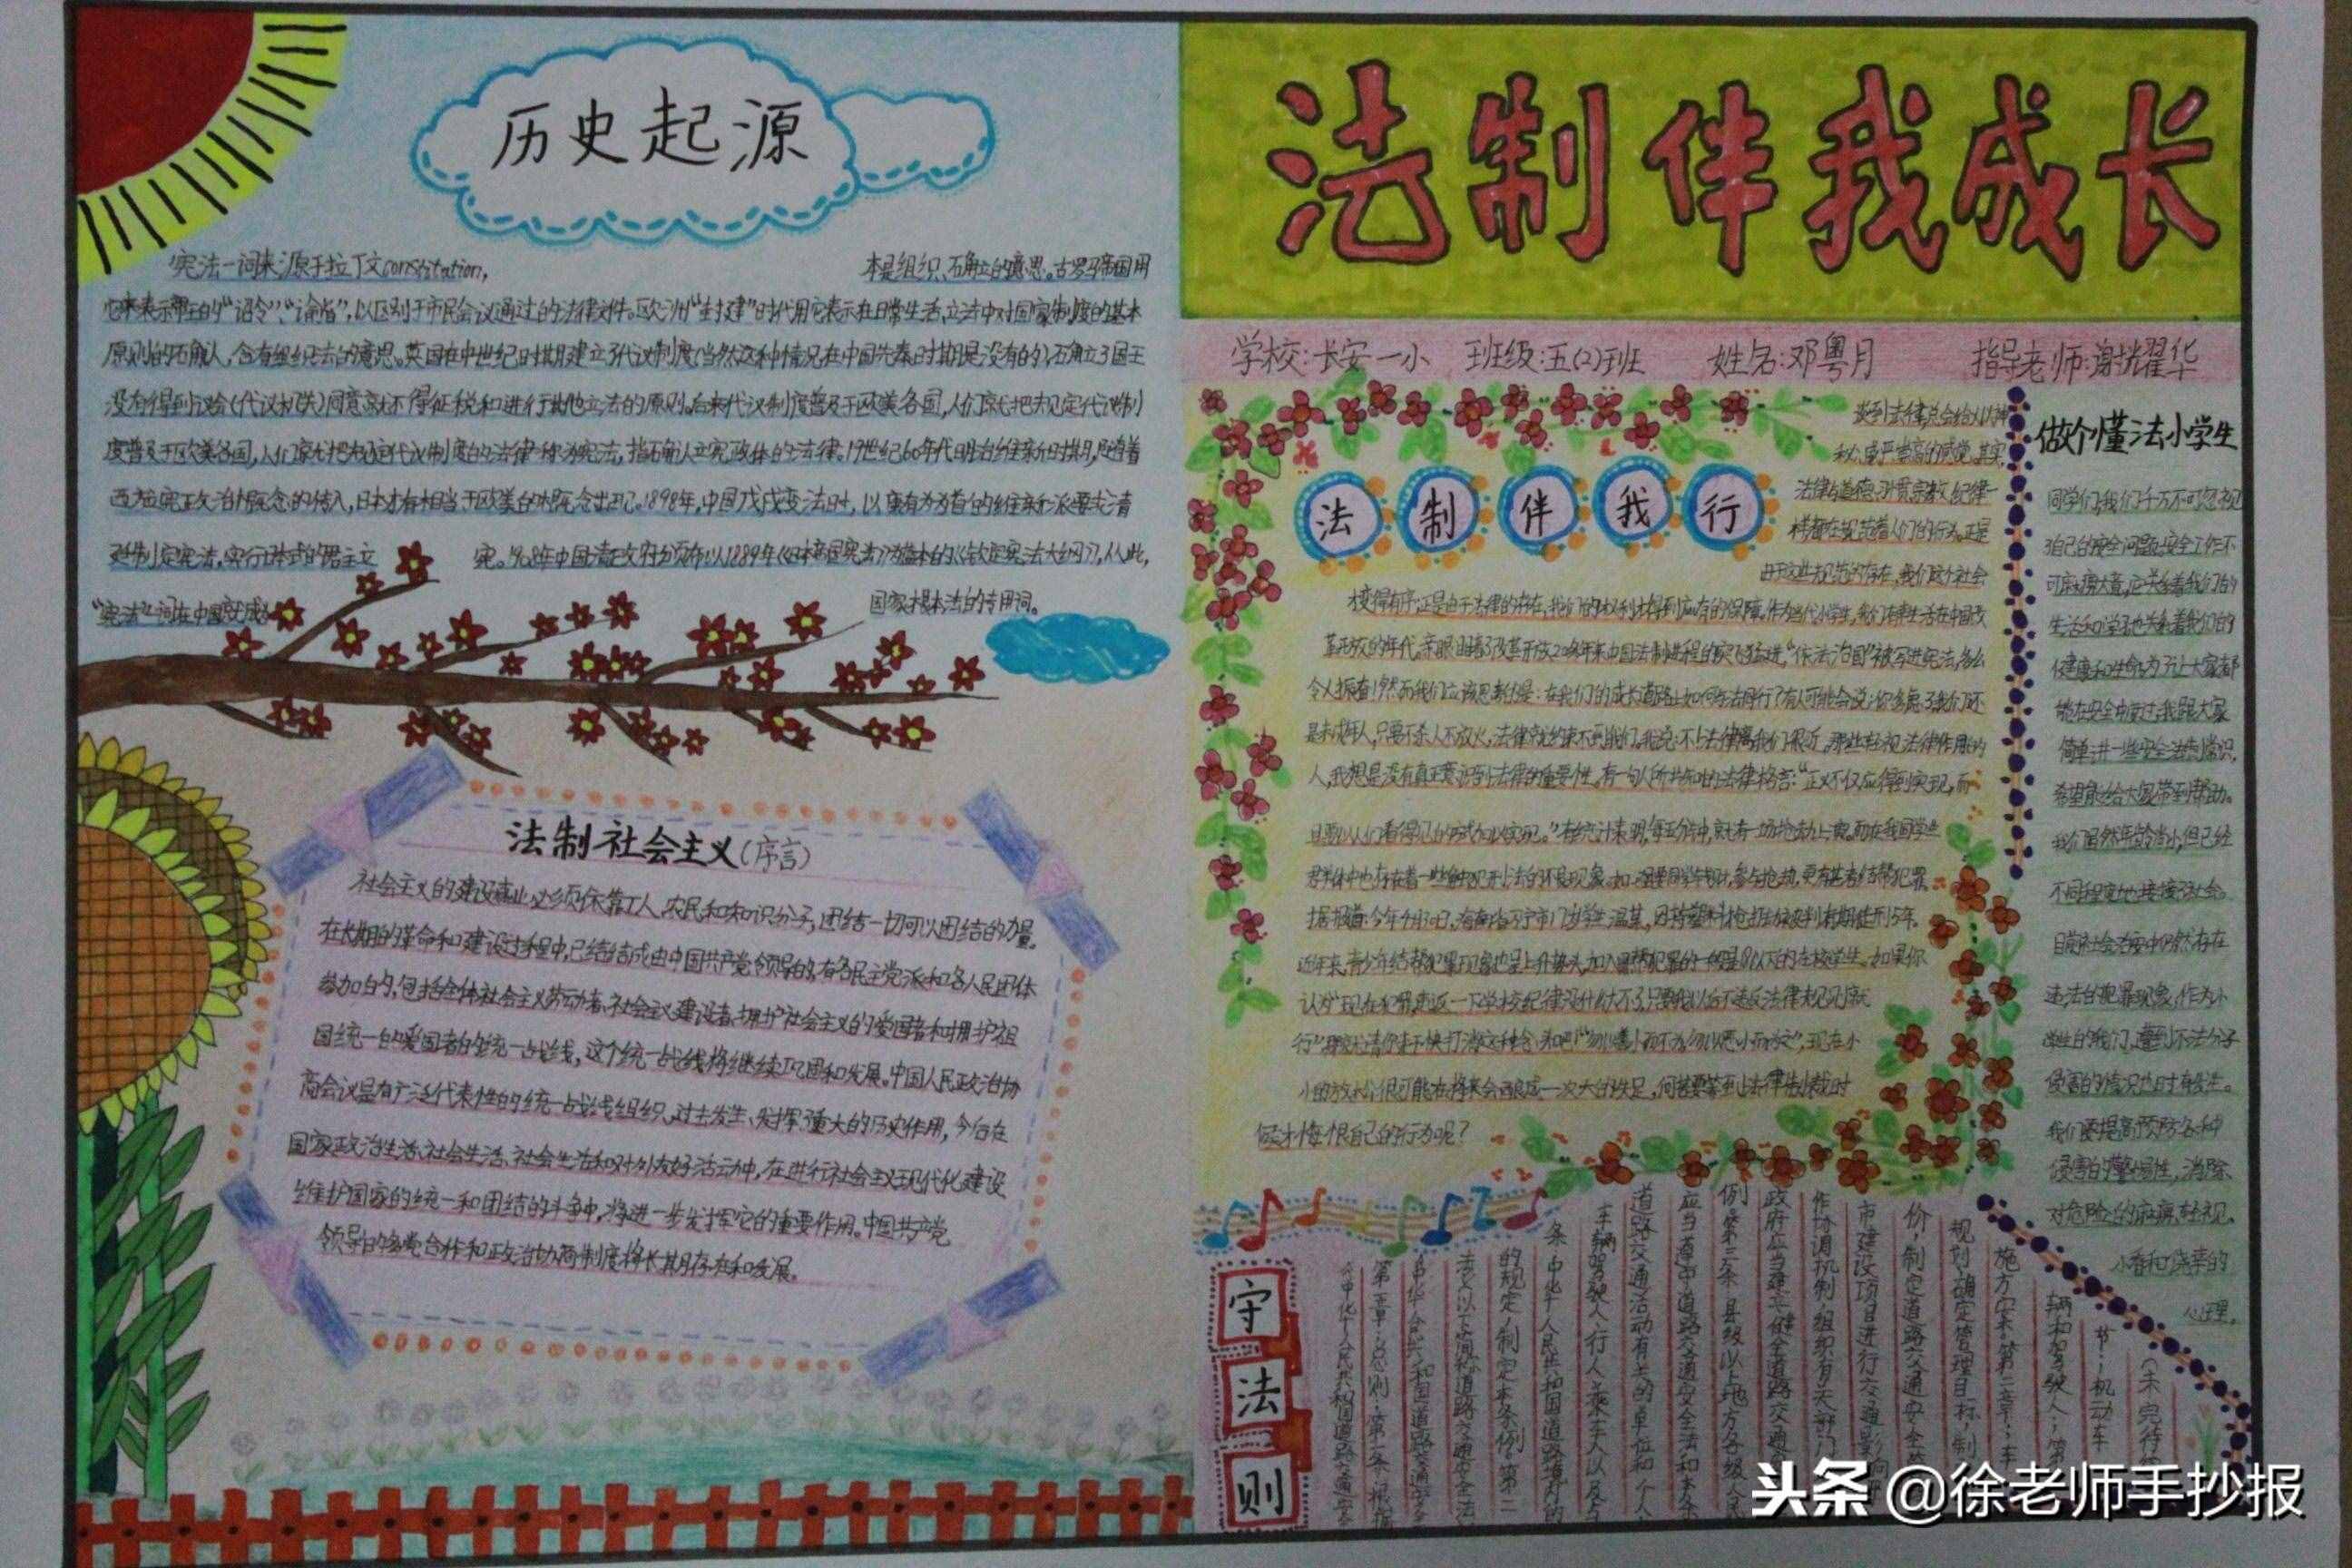 历史起源
宪法一词来源于拉丁文constitation,
本是组织、确立的意思。古罗马帝国用
它来表示帝王的“诏令”、“谕旨”,以区别于市民会议通过的法律文件。欧洲“封建”时代用它表示在日常生活、立法中对国家制度的基本
原则的确认,含有组织法的意思。英国在中世纪时期建立了代议制度(当然这种情况在中国先秦时期是没有的),确立了国王
没有得到议会(代议机关)同意就不得征税和进行其他立法的原则。后来代议制度普及于欧美各国,人们就把规定代议制
度普及于欧美各国,人们就把规定代议制度的法律称为宪法,指确认立宪政体的法律。19世纪60年代明治维新时期,随着
西方宪政政治概念的传入,日本才有相当于欧美的概念出现。1898年,中国戊戌变法时,以康有为为首的维新派要求清
廷制定宪法,实行
立
宪。1908年中国清政府颁布以1889年《日本帝国宪法》为蓝本的《钦定宪法大纲》,从此,
“宪法”一词在中国变成
国家根本法的专用词。
法制社会主义(序言)
社会主义的建设事业必须依靠工人、农民和知识分子,团结一切可以团结的力量。
在长期的革命和建设过程中,已经结成由中国共产党领导的,有各民主党派和各人民团体
参加的,包括全体社会主义劳动者、社会主义建设者、拥护社会主义的爱国者和拥护祖
国统一的爱国者的统一战线,这个统一战线将继续巩固和发展。中国人民政治协
商会议是有广泛代表性的统一战线组织,过去发生、发挥了重大的历史作用,今后在
国家政治生活、社会生活、社会生活和对外友好活动中,在进行社会主义现代化建设
维护国家的统一和团结的斗争中,将进一步发挥它的重要作用。中国共产党
领导的多党合作和政治协商制度将长期存在和发展。
法制伴我成长
学校:长安一小 班级:五(2)班 姓名:邓粤月 指导老师:谢耀华
法制伴我行
谈到法律,总会给人以神
秘、威严、崇高的感觉。其实,
法律与道德、习惯、宗教、纪律一
样都在规范着人们的行为。正是
由于这些规范的存在,我们这个社会
才变得有序;正是由于法律的存在,我们的权利才得到应有的保障。作为当代小学生,我们有幸生活在中国改
革开放的年代,亲眼目睹了改革开放20多年来中国法制进程的突飞猛进,“依法治国”被写进宪法,多么
令人振奋!然而我们应该思考的是:在我们的成长道路上如何与法同行?有人可能会说:你多虑了,我们还
是未成年人,只要不杀人不放火,法律就约束不到我们。我说:不!法律离我们很近。那些轻视法律作用的
人,我想是没有真正意识到法律的重要性。有一句人所共知的法律格言:“正义不仅应得到实现,而
且要以人们看得见的方式加以实现。”有统计表明,每五分钟,就有一场抢劫上演。而在我国学生
群体中也存在着一些触犯刑法的不良现象。如
参与抢劫,更有甚者结帮犯罪。
近年来,青少年结帮犯罪现象也呈上升势头,加入
的一般是18以下的在校学生。如果你
认为“现在犯罪,违返一下学校纪律没什么大不了,只要我以后不违反法律规定就
行”那就请你赶快打消这种念头吧!“勿以善小而不为,勿以恶小而为之”,现在小
小的放松很可能在将来会酿成一次大的失足,何苦要等到法律制裁时
候才悔恨自己的行为呢?
做个懂法小学生
同学们,我们千万不可忽视
了自己的安全问题,安全工作不
可麻痹大意,它关系着我们的
生活和学习,也关系着我们的
健康和生命,为了让大家都
能在安全中度过,我跟大家
简单讲一些安全法制常识,
希望能给大家带到帮助。
我们虽然年龄尚小,但已经
不同程度地接接社会。
目前社会治安中仍然存在
违法的犯罪现象,作为小
学生的我们,遭到不法分子
侵害的情况也时有发生。
我们要提高预防各种
侵害的警惕性,消除
对危险的麻痹、轻视、
小看和侥幸的
心理。
守法则
《中华人民共和国道路交通安全
第一章:总则·第一条·根据
《中华人民共和国道路交通安全
法》(以下简称道路交通安全法
的规定,制定本条例。第二
条中华人民共和国道路境内的
车辆驾驶人、行人、乘车人以及与
道路交通活动有关的单位和个人
应当遵守道路交通安全法和本条
例。第三条县级以上地方各级人民
政府应当建立、健全道路交通安
作协调机制,组织有关部门
市建设项目进行交通影响
价,制定道路交通安全
规划,确定管理目标,制
施方案。第二章:车
辆和驾驶人:第
节:机动车
(未完待
头条 @徐老师手抄报